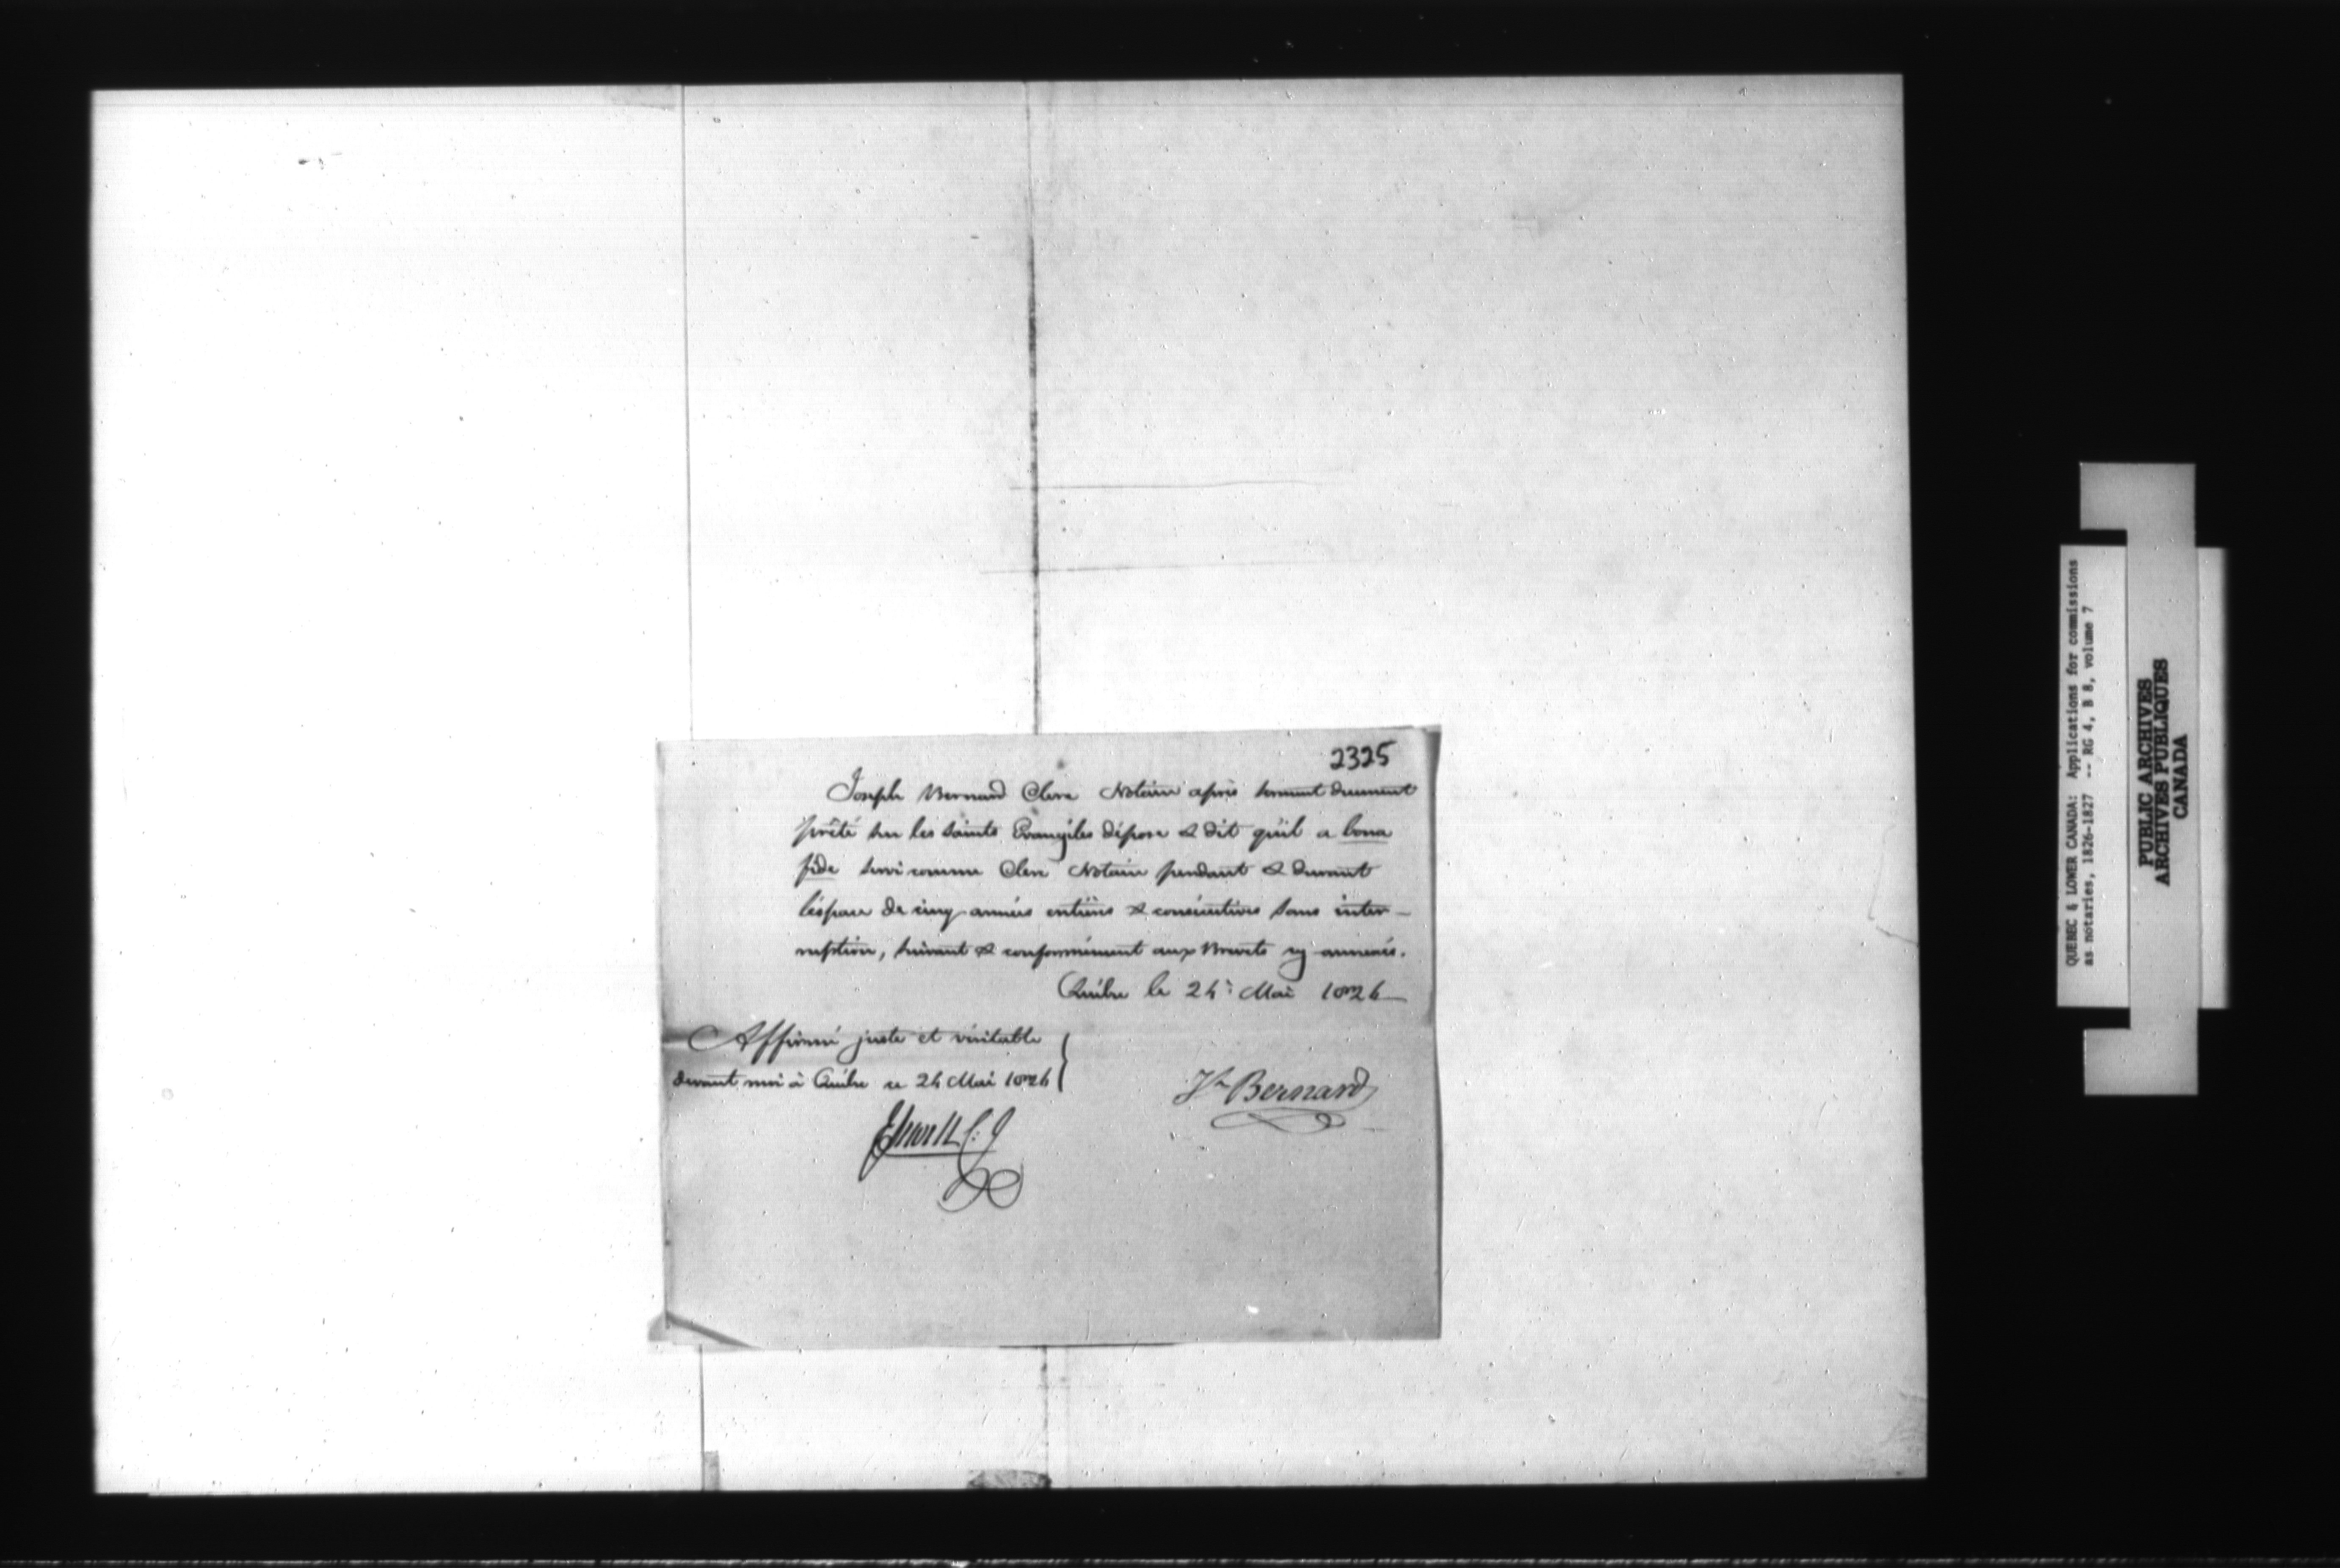 2325
Joseph Bernard Clerc Notaire après serment duement
prêté sur les saints Evangiles dépose & dit qu'il a bona
fide servi comme Clerc Notaire pendant & durant
l'éspace de cinq années entières & consécutives sans inter-
ruption, suivant & conformément aux Brevets cy annexés.
Québec le 24e Mai 1826
Affirmé juste et véritable
devant moi à Québec ce 24 Mai 1826
Jh Bernard
QUEBEC & LOWER CANADA: Applications for commissions
as notaries, 1826-1827 -- RG 4, B 8, volume 7
PUBLIC ARCHIVES
ARCHIVES PUBLIQUES
CANADA